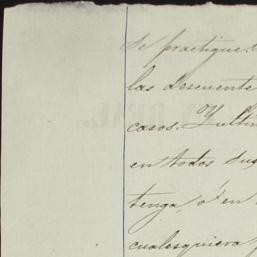 se practique
las descuente
casos. Y ultim
en todos sus
tenga, ó en
cualesquiera